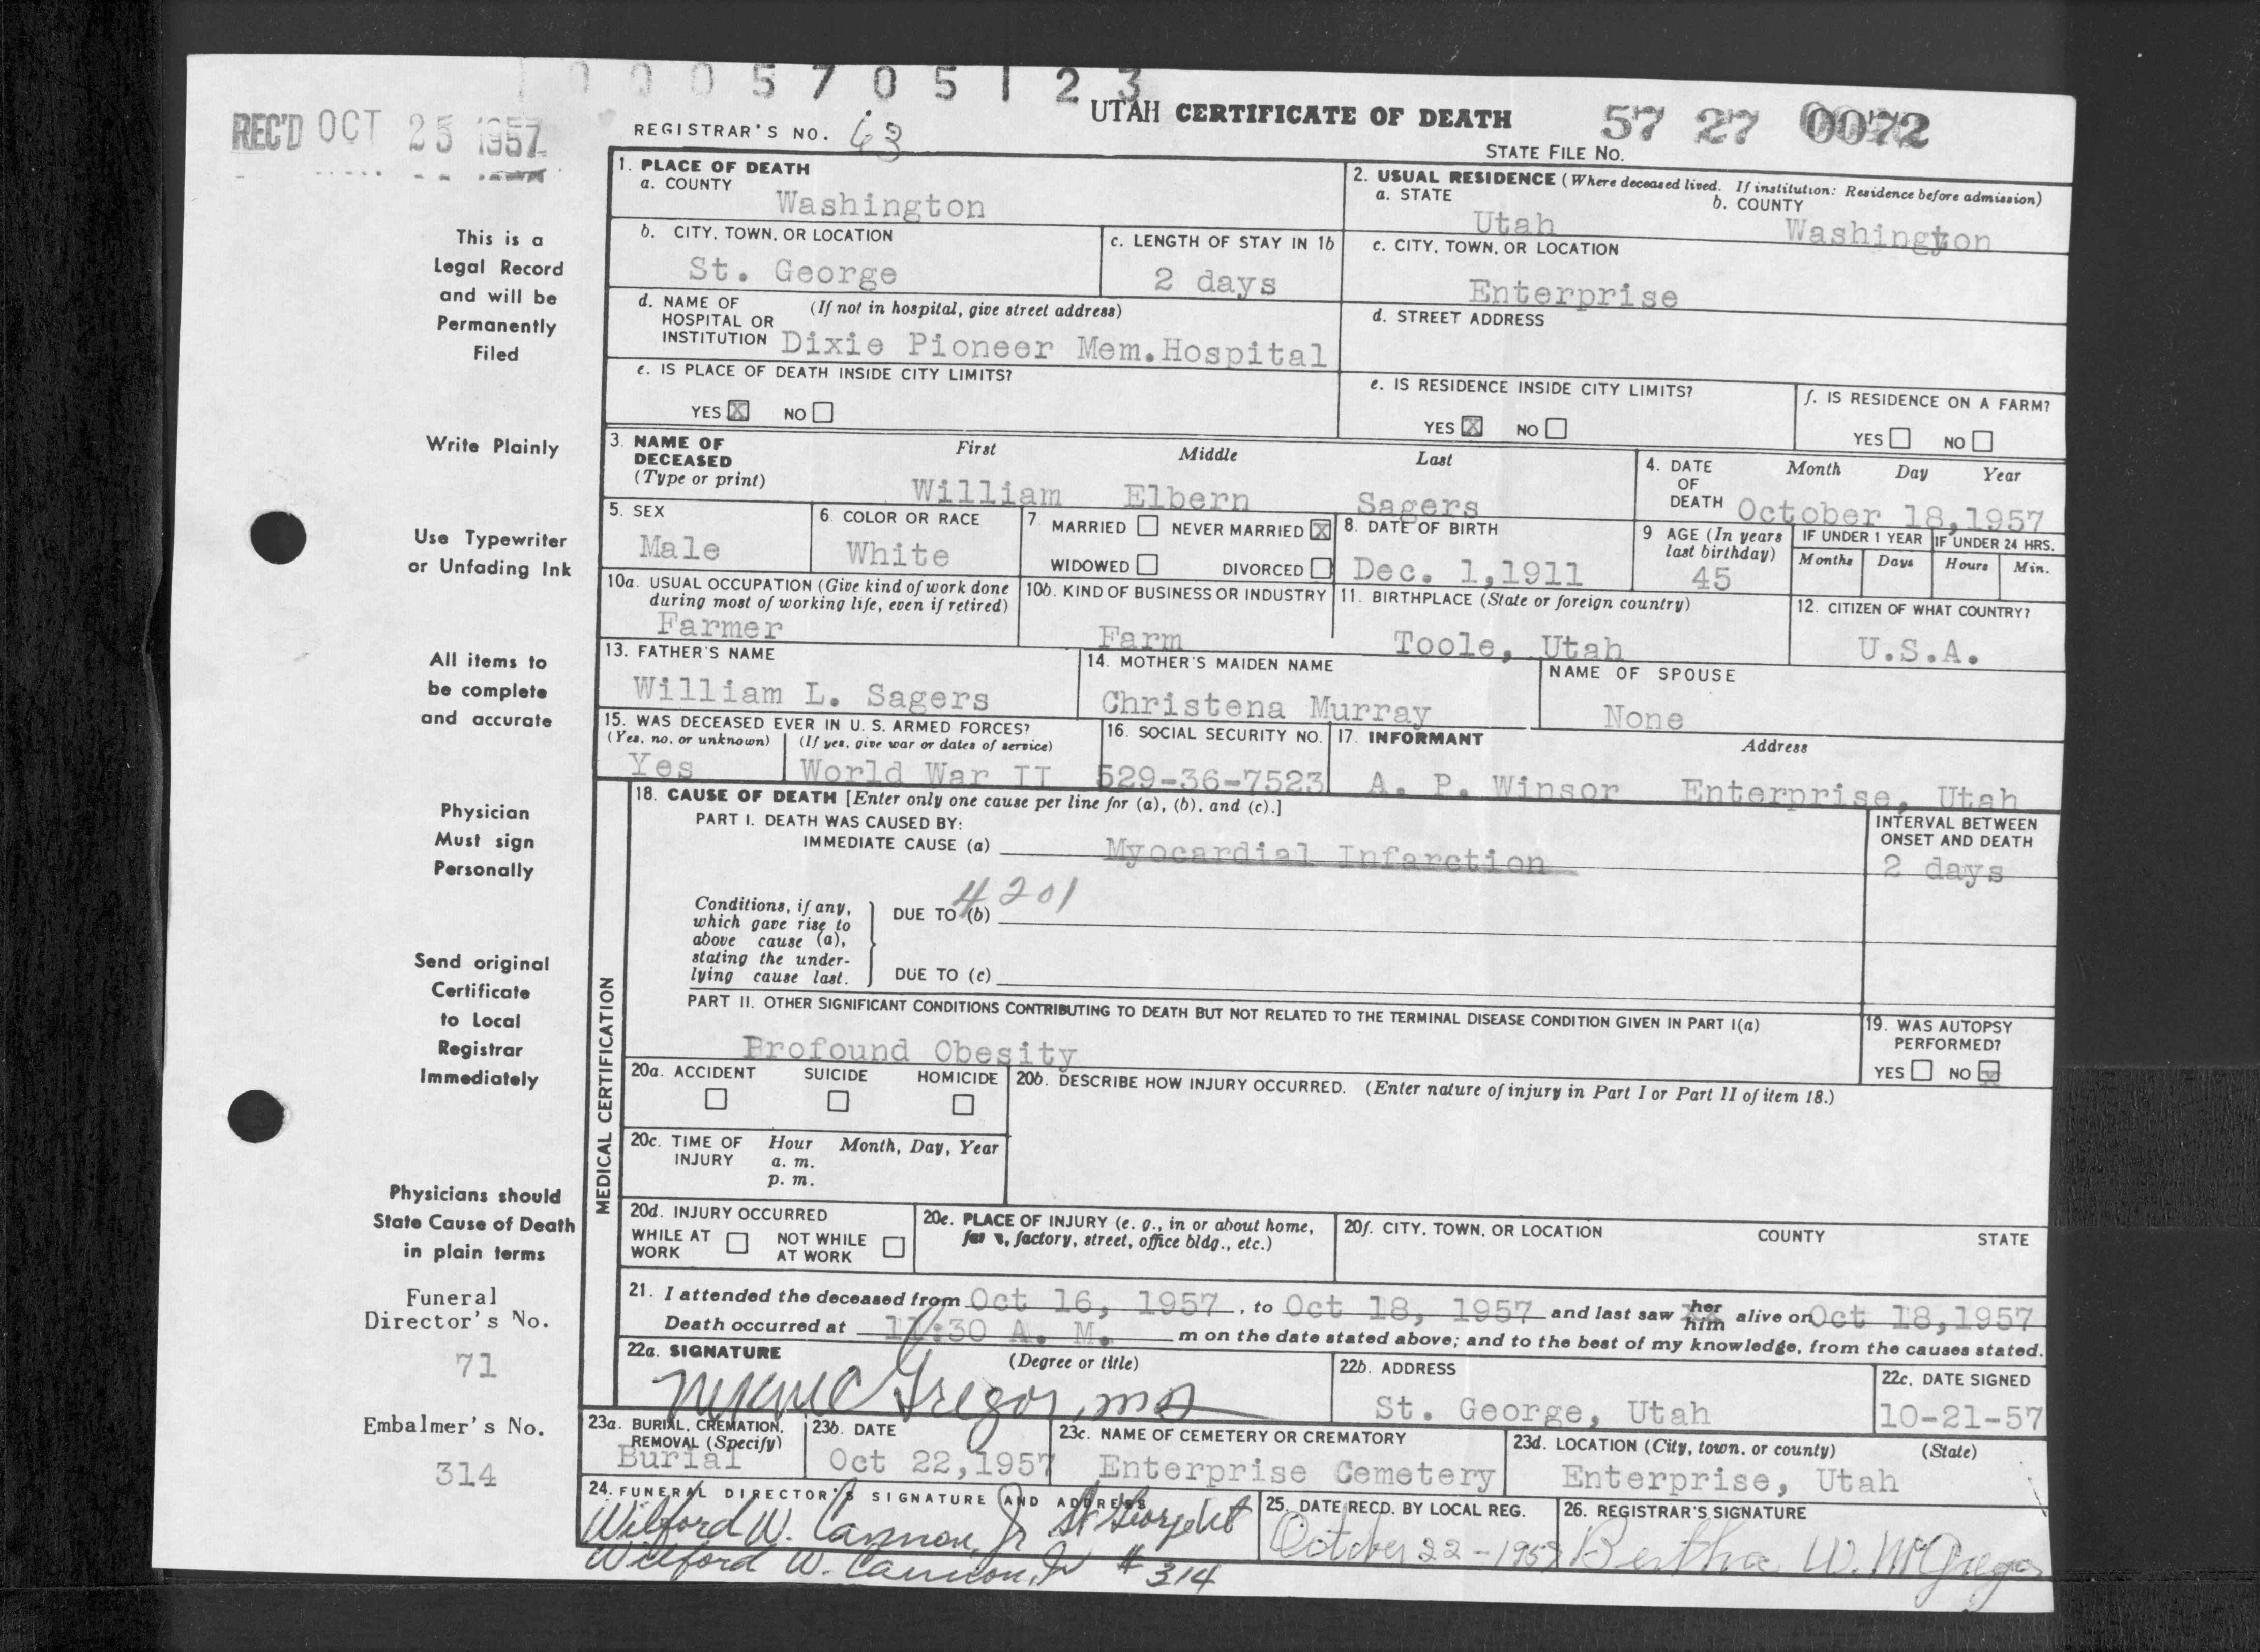 0 0 0 5 7 0 5 1 2 3
REC'D OCT 25 1957
REGISTRAR'S NO. 63
UTAH CERTIFICATE OF DEATH
57 27 0072
STATE FILE NO.
This is a
Legal Record
and will be
Permanently
Filed
Write Plainly
Use Typewriter
or Unfading Ink
All items to
be complete
and accurate
Physician
Must sign
Personally
Send original
Certificate
to Local
Registrar
Immediately
Physicians should
State Cause of Death
in plain terms
Funeral
Director's No.
71
Embalmer's No.
314
1. PLACE OF DEATH
a. COUNTY
Washington
2. USUAL RESIDENCE (Where deceased lived. If institution: Residence before admission)
a. STATE b. COUNTY
Utah Washington
b. CITY, TOWN, OR LOCATION
St. George
c. LENGTH OF STAY IN 1b
2 days
c. CITY, TOWN, OR LOCATION
Enterprise
d. NAME OF (If not in hospital, give street address)
HOSPITAL OR
INSTITUTION Dixie Pioneer Mem.Hospital
d. STREET ADDRESS
e. IS PLACE OF DEATH INSIDE CITY LIMITS?
YES X NO
e. IS RESIDENCE INSIDE CITY LIMITS?
YES X NO
f. IS RESIDENCE ON A FARM?
YES NO
3. NAME OF DECEASED (Type or print)
First Middle Last
William Elbern Sagers
4. DATE OF DEATH
Month Day Year
October 18,1957
5. SEX
Male
6. COLOR OR RACE
White
7. MARRIED NEVER MARRIED X
WIDOWED DIVORCED
8. DATE OF BIRTH
Dec. 1,1911
9 AGE (In years
last birthday)
45
IF UNDER 1 YEAR
Months Days
IF UNDER 24 HRS.
Hours Min.
10a. USUAL OCCUPATION (Give kind of work done
during most of working life, even if retired)
Farmer
10b. KIND OF BUSINESS OR INDUSTRY
Farm
11. BIRTHPLACE (State or foreign country)
Toole, Utah
12. CITIZEN OF WHAT COUNTRY?
U.S.A.
13. FATHER'S NAME
William L. Sagers
14. MOTHER'S MAIDEN NAME
Christena Murray
NAME OF SPOUSE
None
15. WAS DECEASED EVER IN U. S. ARMED FORCES?
(Yes, no, or unknown) (If yes, give war or dates of service)
Yes World War II
16. SOCIAL SECURITY NO.
529-36-7523
17. INFORMANT Address
A. P. Winsor Enterprise, Utah
MEDICAL CERTIFICATION
18. CAUSE OF DEATH [Enter only one cause per line for (a), (b), and (c).]
PART I. DEATH WAS CAUSED BY:
IMMEDIATE CAUSE (a) Myocardial Infarction
INTERVAL BETWEEN
ONSET AND DEATH
2 days
4201
Conditions, if any,
which gave rise to
above cause (a),
stating the under-
lying cause last.
DUE TO (b)
DUE TO (c)
PART II. OTHER SIGNIFICANT CONDITIONS CONTRIBUTING TO DEATH BUT NOT RELATED TO THE TERMINAL DISEASE CONDITION GIVEN IN PART I(a)
Profound Obesity
19. WAS AUTOPSY
PERFORMED?
YES NO X
20a. ACCIDENT SUICIDE HOMICIDE
20b. DESCRIBE HOW INJURY OCCURRED. (Enter nature of injury in Part I or Part II of item 18.)
20c. TIME OF INJURY
Hour Month, Day, Year
a. m.
p. m.
20d. INJURY OCCURRED
WHILE AT WORK NOT WHILE AT WORK
20e. PLACE OF INJURY (e. g., in or about home,
factory, street, office bldg., etc.)
20f. CITY, TOWN, OR LOCATION COUNTY STATE
21. I attended the deceased from Oct 16, 1957, to Oct 18, 1957 and last saw her him alive on Oct 18,1957
Death occurred at 11:30 A. M. m on the date stated above; and to the best of my knowledge, from the causes stated.
22a. SIGNATURE (Degree or title)
McGregor, MD
22b. ADDRESS
St. George, Utah
22c. DATE SIGNED
10-21-57
23a. BURIAL, CREMATION,
REMOVAL (Specify)
Burial
23b. DATE
Oct 22,1957
23c. NAME OF CEMETERY OR CREMATORY
Enterprise Cemetery
23d. LOCATION (City, town, or county) (State)
Enterprise, Utah
24. FUNERAL DIRECTOR'S SIGNATURE AND ADDRESS
Wilford W. Cannon, Jr St George Ut
Wilford W. Cannon, Jr # 314
25. DATE RECD. BY LOCAL REG.
October 22-1957
26. REGISTRAR'S SIGNATURE
Bertha W. McGregor